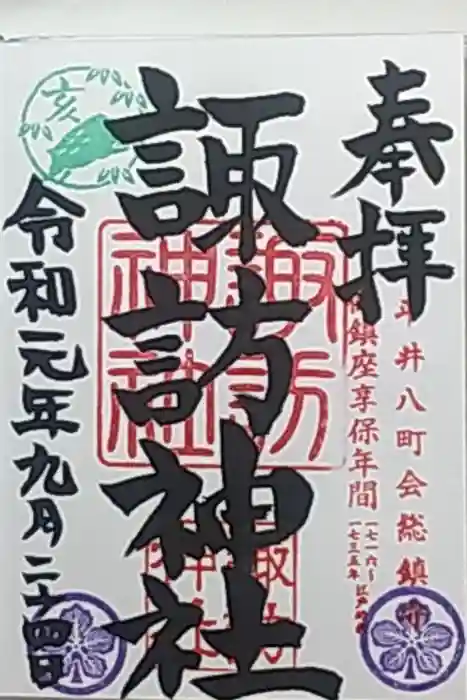 奉拝
井八町会総鎮守
鎮座享保年間
一七一六〜
一七三五年
諏訪神社
諏訪
神社
諏訪
神社
令和元年九月二十四日
亥